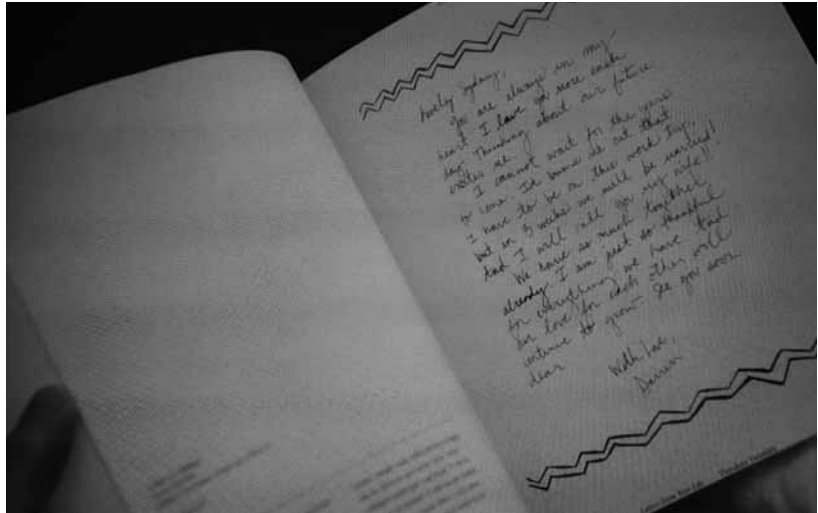 Lovely Sydney,
You are always in my
heart I love you more each
day. Thinking about our future
excites me.
I cannot wait for the years
to come. It bums me out that
I have to be on this work trip,
but in 3 weeks we will be married!
And I will call you my wife!!
We have so much together
already I am just so thankful
for everything we have and
our love for each other will
continue to grow. See you soon
dear
With Love,
Darren